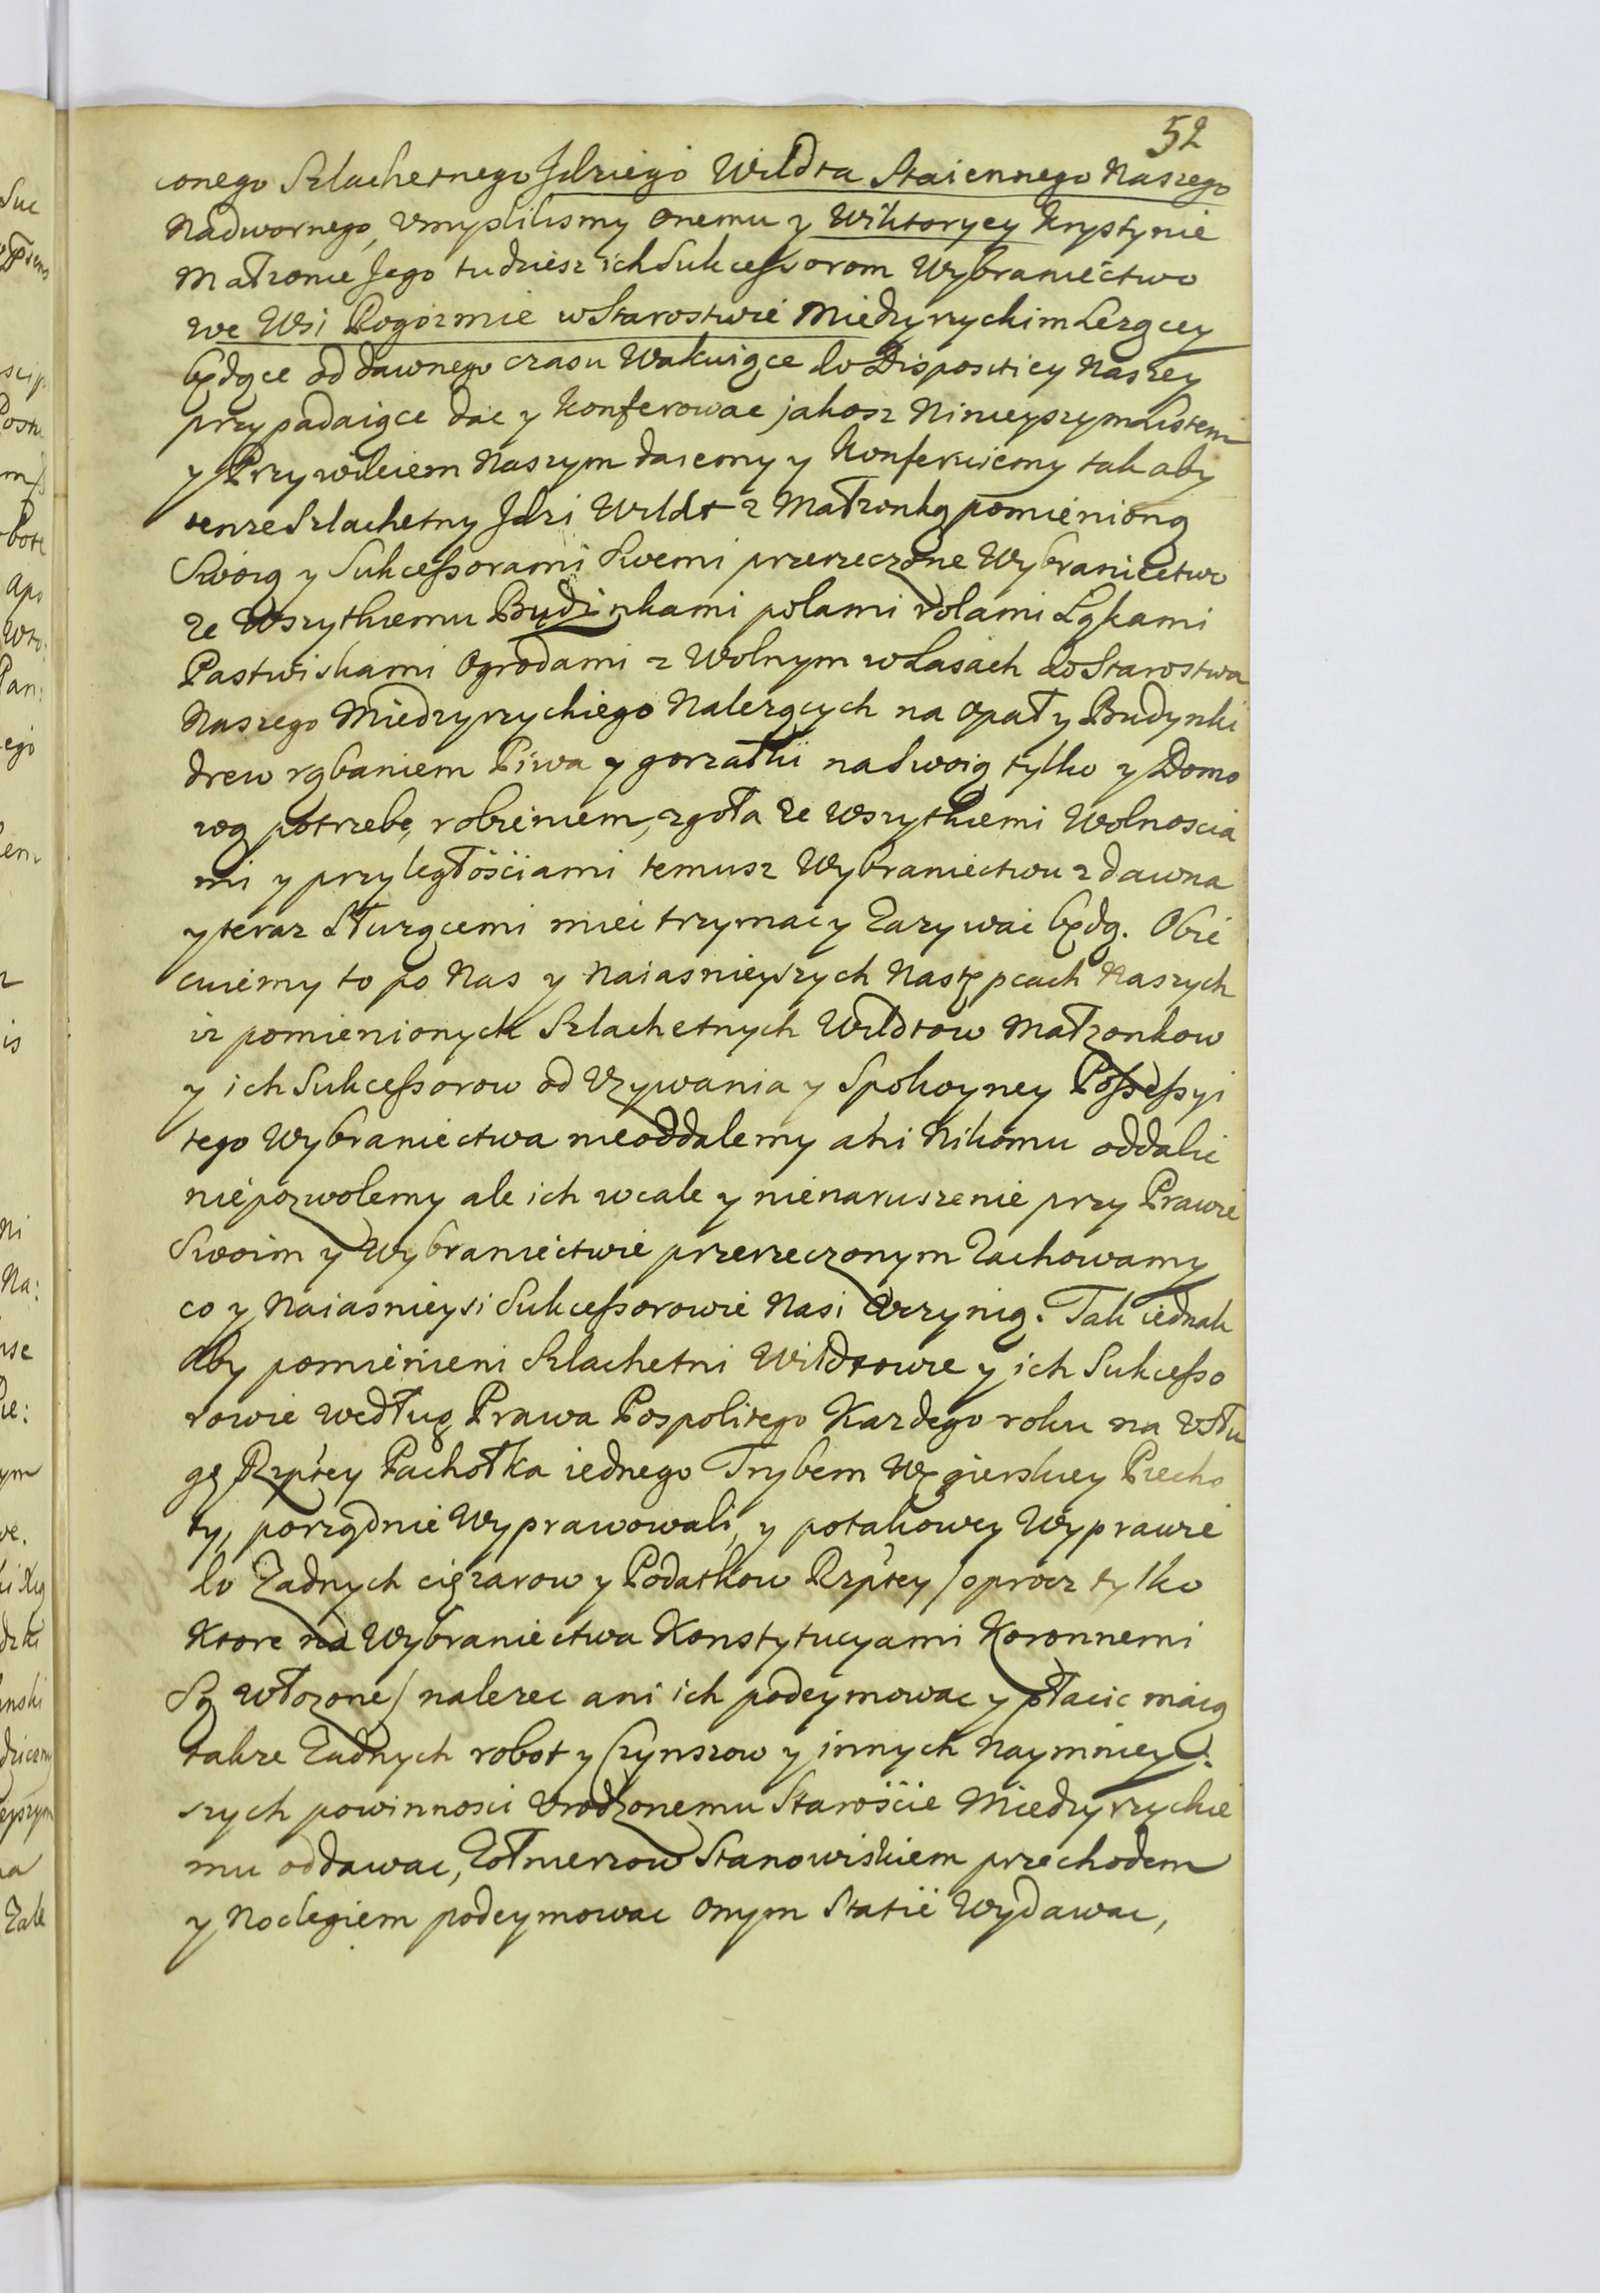 52
conego Szlachetnego Jdziego Wildta Staiennego Naszego
Nadwornego, Vmyslilismy onemu y Wiktoryey Krystynie
Małzonce Jego tudziesz ich Sukcessorom Wybraniectwo
we Wsi Rogozinie w Starostwie Miedzyrzyckim Lezącey
będące od dawnego czasu Wakuiące do Dispositiey Naszey
przypadaiące dac y konferowac jakosz Ninieyszym Listem
y Przywileiem Naszym daiemy y Konferuiemy tak aby
tenze Szlachetny Jdzi Wildt z Małzonką pomienioną
Swoią y Sukcessorami Swemi przerzeczone Wybraniectwo
ze Wszytkiemu Budynkami polami rolami Ląkami
Pastwiskami Ogrodami z Wolnym w Lasach do Starostwa
Naszego Miedzyrzyckiego Nalezących na opał y Budynki
drew rąbaniem Piwa y gorzałki na Swoią tylko y Domo
wą potrzebę, robieniem, zgoła ze wszytkiemi Wolnoscia
mi y przyległościami temusz Wybraniectwu z dawna
y teraz Słuzącemi miec trzymac y Zazywac będą. Obie
cuiemy to po Nas y Naiasnieyszych Nastepcach Naszych
iz pomienionych Szlachetnych Wildtow Małzonkow
y ich Sukcessorow od Vzywania y Spokoyney Possessyi
tego Wybraniectwa nieoddalemy ani Nikomu oddalic
niepozwolemy ale ich wcale y nienaruszenie przy Prawie
Swoim y Wybraniectwie przerzeczonym Zachowamy
co y Naiasnieysi Sukcessorowie Nasi Vczynią. Tak iednak
aby pomienieni Szlachetni Wildtowie y ich Sukcesso
rowie według Prawa Pospolitego Kazdego roku na Vsłu
gę Rzptey Pachołka iednego Trybem Węgierskiey Piecho
ty, porządnie Wyprawowali, y po takowey Wyprawie
do Zadnych cięzarow y Podatkow Rzptey / oprocz tylko
Ktore na Wybraniectwa Konstytucyami Koronnemi
Są włozone / nalezec ani ich podeymowac y płacic maią
takze Zadnych robot y Czynszow y innych Naymniey:
szych powinnosci Vrodzonemu Staroście Miedzyrzyckie
mu oddawac, Zołnierzow Stanowiskiem przechodem
y Noclegiem podeymowac onym Statii Wydawac,